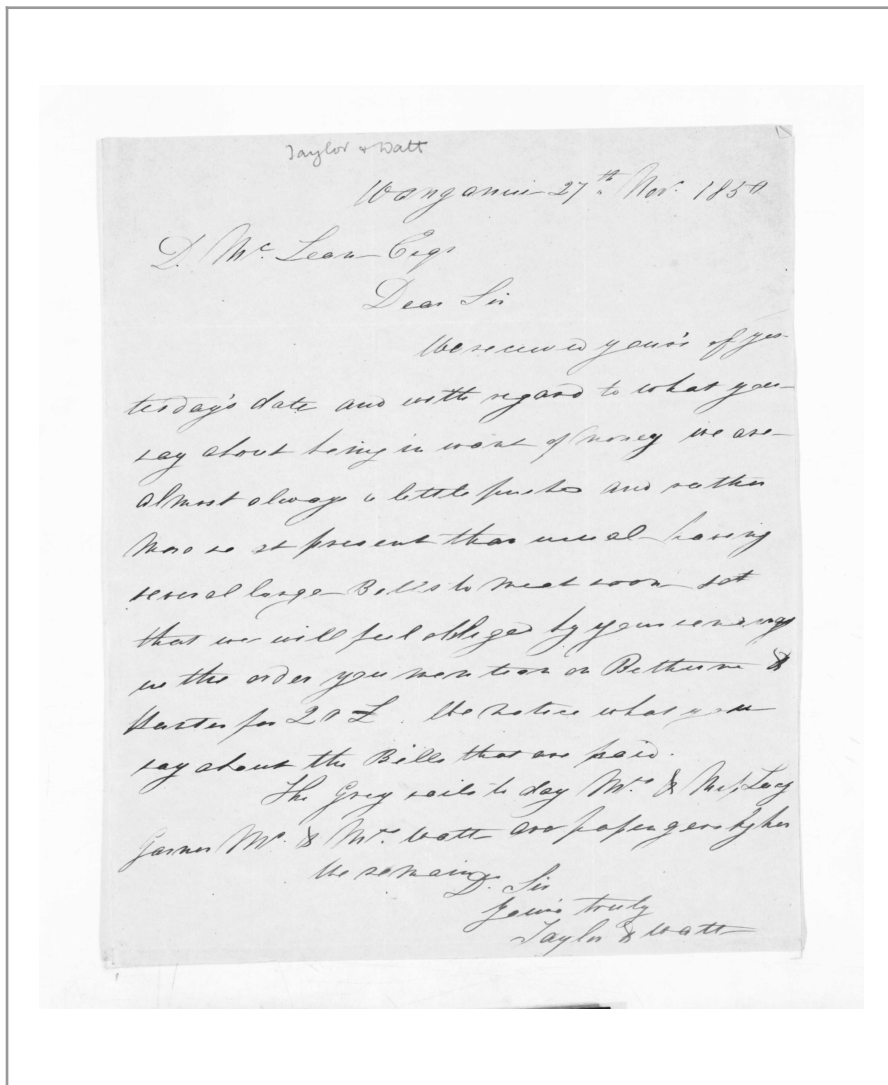 Taylor & Watt
Wanganui 27th Nov. 1850
D. Mc. Lean Esqr
Dear Sir
We received your's of yes-
terday's date and with regard to what you
say about being in want of money we are
almost always a little pushed and rather
more so at present than usual having
several large Bills to meet soon so
that we will feel obliged by your sending
us the order you mention on Bethune &
Hunter for 20 £. We notice what you
say about the Bills that are paid.
The Grey sails to day Mrs. & Miss
Mr. & Mrs. Watt are passengers by her
We remain
D. Sir
Yours truly
Taylor & Watt